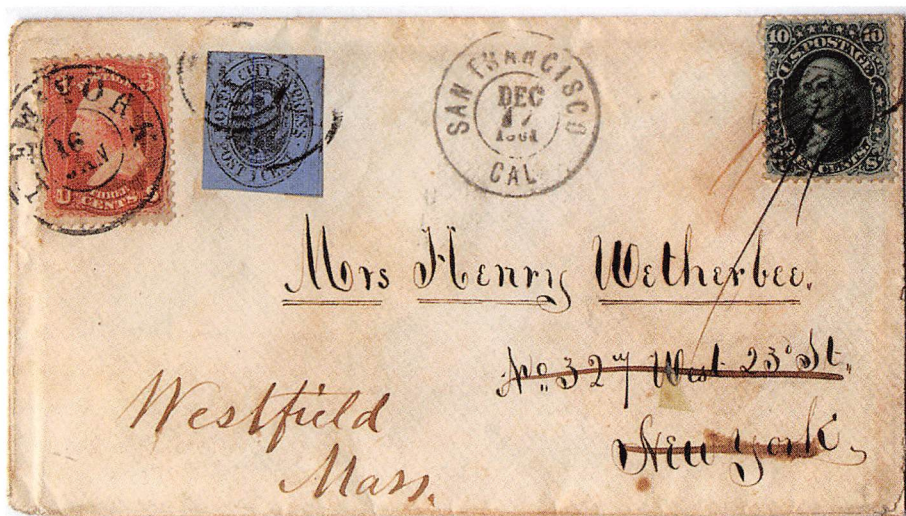 NEW YORK
16
JAN
CENTS
CITY EXPRESS
POST
SAN FRANCISCO
DEC
17
1861
CAL
10 10
U.S. POSTAGE
TEN CENTS
Mrs Henry Wetherbee.
No. 327 West 23d St.
New York.
Westfield
Mass.